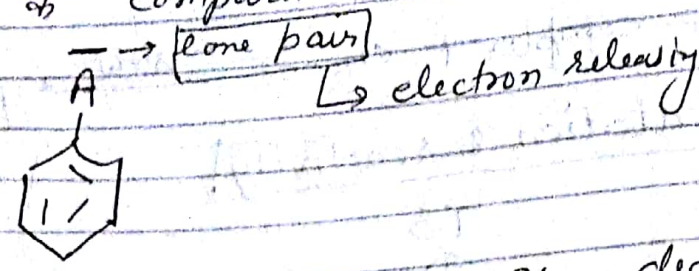 lone pair
↳ electron releasing
A